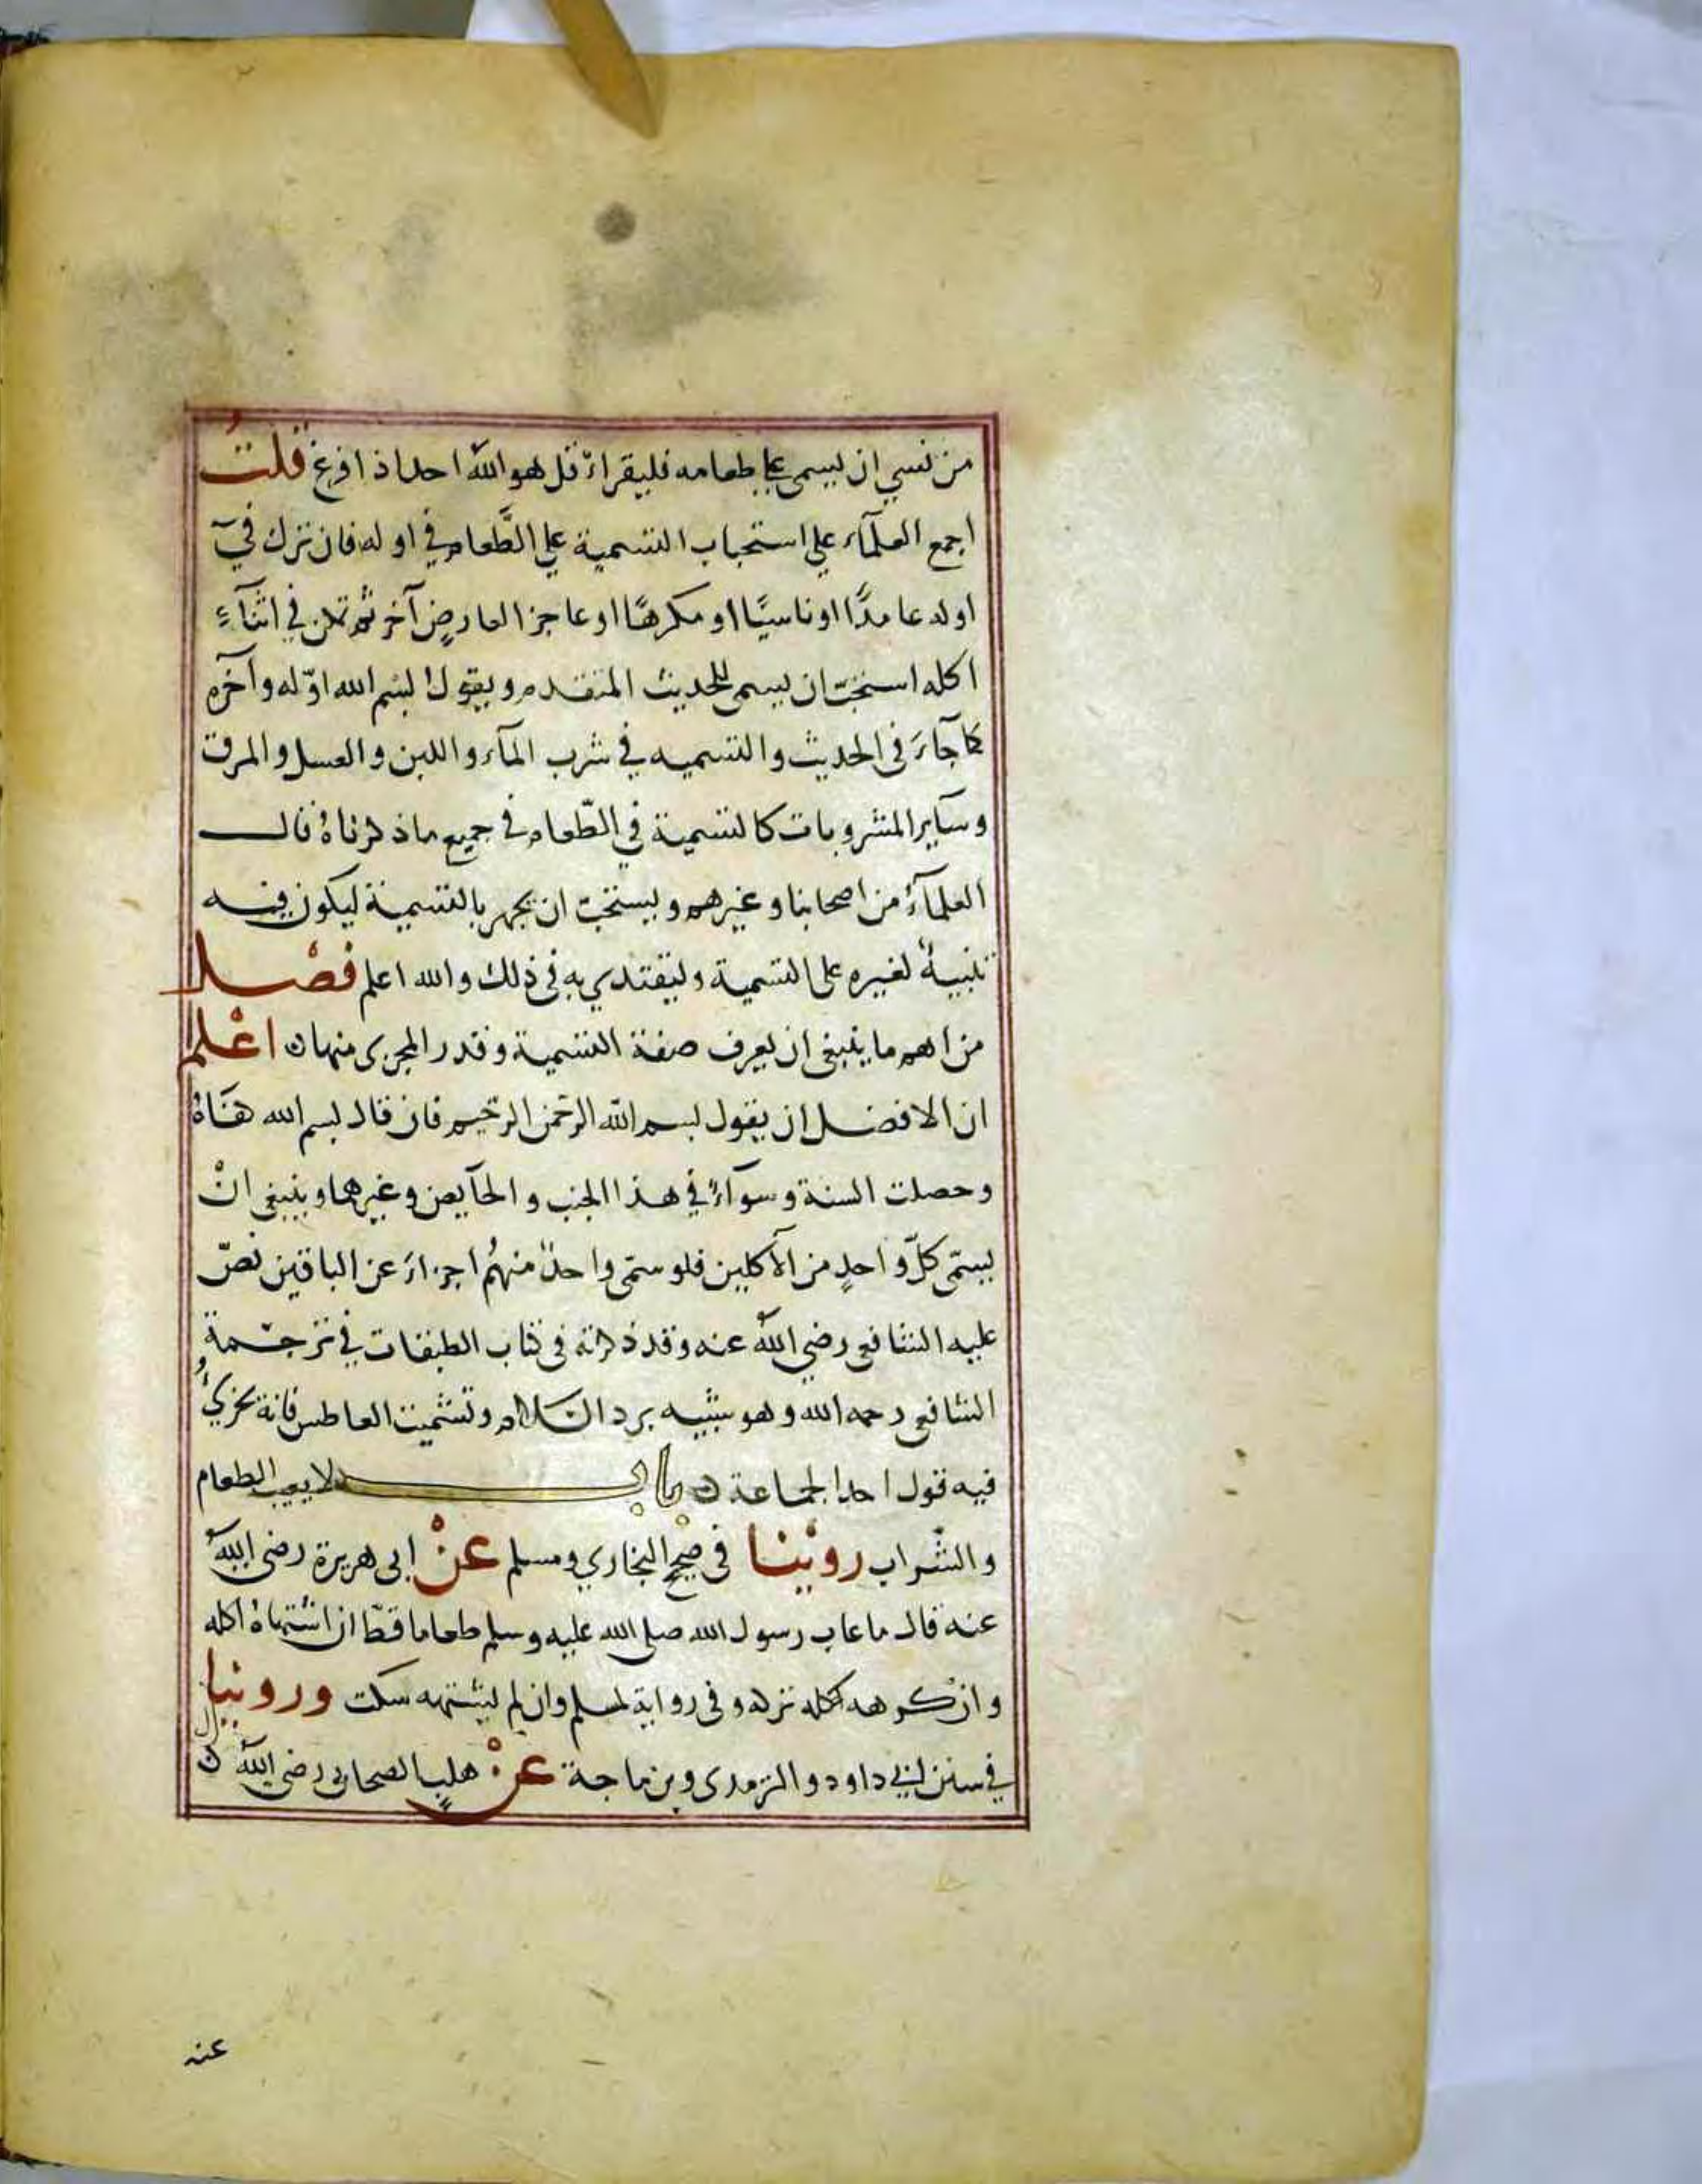 من نسي ان يسمى على طعامه فليقراء قل هو الله احد اذا فرغ قلتُ
اجمع العلمآء على استحباب التسمية على الطَّعام في اوله فان ترك في
اوله عامدًا او ناسيًا او مكرهًا او عاجزا لعارضٍ آخر ثم تمكن في اثنآءِ
اكله استحبّ ان يسمى للحديث المتقدم ويقول بسم الله اوّله وآخره
كما جآءَ فى الحديث والتسميه في شرب المآء واللبن والعسل والمرق
وسآير المشروبات كالتسمية في الطّعام في جميع ماذكرناهُ قال
العلمآءُ من اصحابنا وغيرهم ويستحبّ ان يجهر بالتسمية ليكون فيه
تنبيهٌ لغيره على التسمية وليقتدي به فى ذلك والله اعلم فصْل
من اهم ما ينبغى ان يعرف صفة التسمية وقدر المجزى منها ن اعْلم
ان الافضل ان يقول بسم الله الرحمن الرحيم فان قال بسم الله كفاهُ
وحصلت السنة وسوآءٌ في هذا الجنب والحآيض وغيرهما وينبغى انْ
يسمّى كلّ واحدٍ من الآكلين فلو سمّى واحدٌ منهُم اجزاءَ عن الباقين نصّ
عليه الشافعى رضى اللهُ عنه وقد ذكرته فى كتاب الطبقات في ترجمةِ
الشافعى رحمه الله وهو شبيه برد السّلام وتشميت العاطس فانهُ يجزيُ
فيه قول احد الجماعة ن باب لا يعيب الطعام
والشّراب روينا فى صحيح البخاري ومسلم عنْ ابى هريرة رضى اللهُ
عنه قال ماعاب رسول الله صلى الله عليه وسلم طعاما قطّ ان اشتهاهُ اكله
وان كرهه تركه وفى رواية لمسلم وان لم يشتهه سكت وروينا
في سنن ابي داود والترمدى وبن ماجة عنْ هلبٍ الصحابى رضى اللهُ
عنه